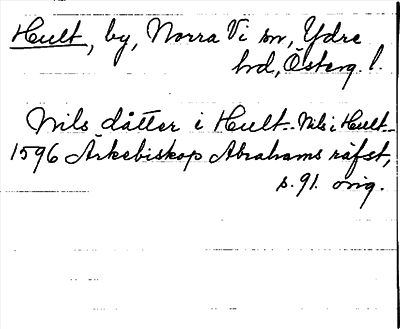 Hult, by, Norra Vi sn, Ydre
hd, Österg. l.
Nils dåtter i Hult - Nils i Hult -
1596 Ärkebiskop Abrahams räfst,
s. 91. orig.